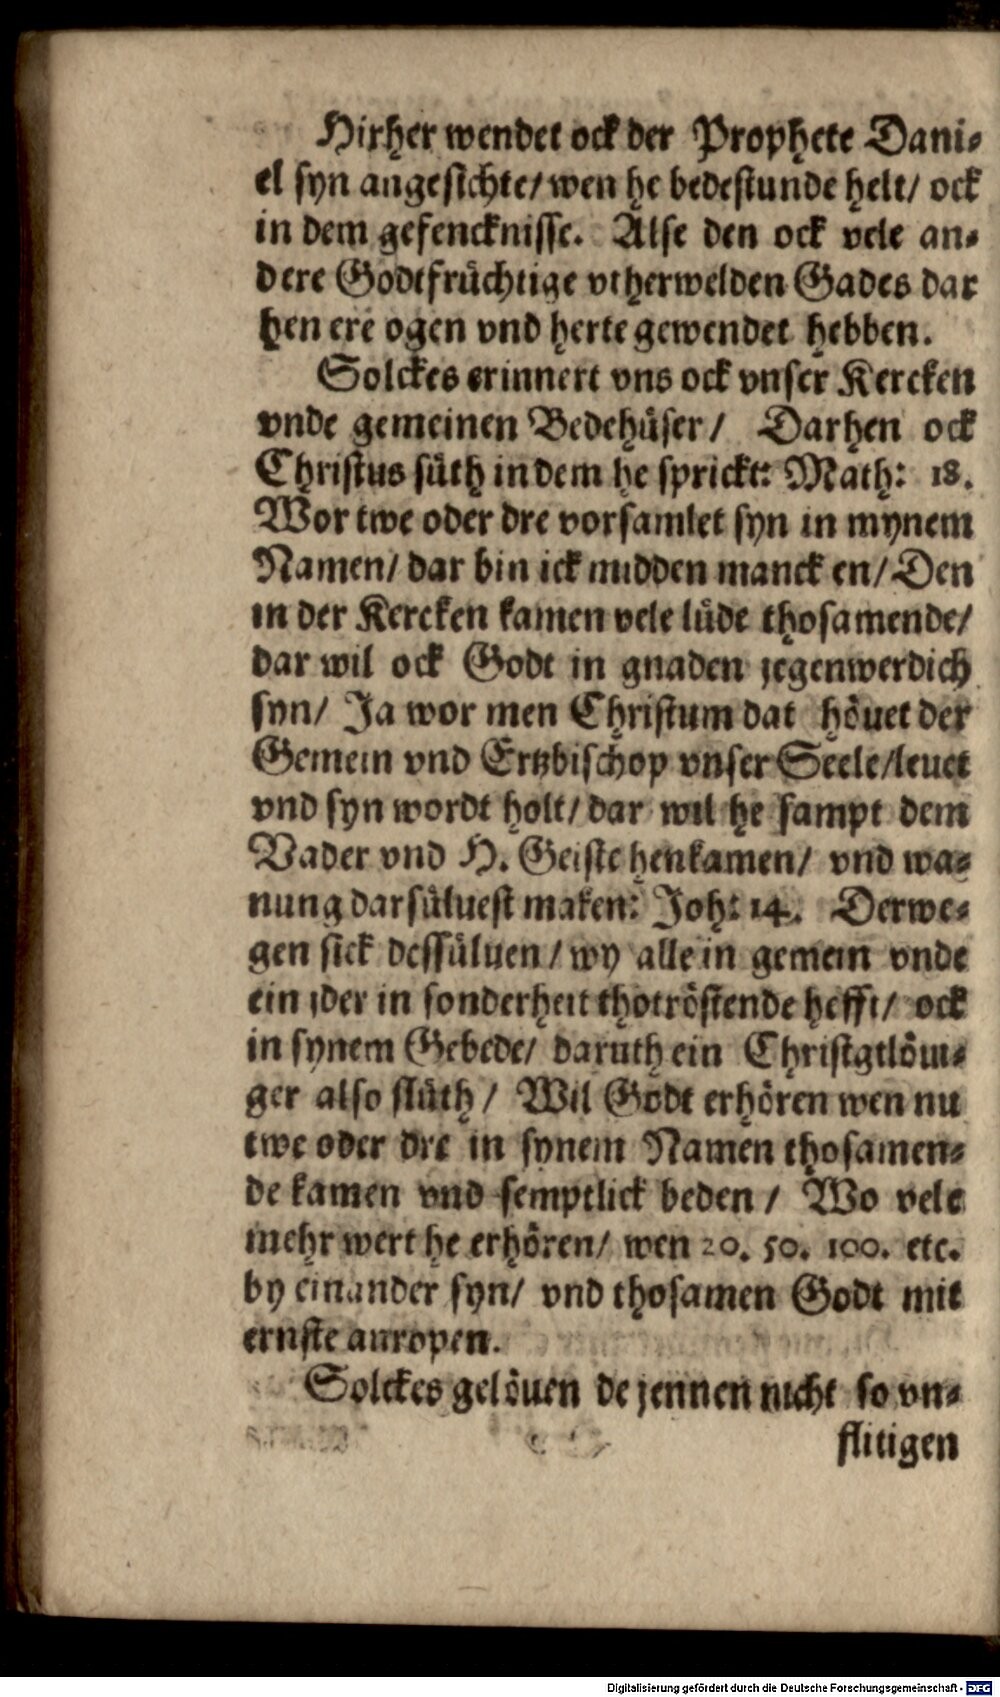 Hirher wendet ock der Prophete Dani⸗
el syn angesichte/ wen he bedestunde helt/ ock
in dem gefencknisse. Alse den ock vele an⸗
dere Godtfrüchtige vtherwelden Gades dar
hen ere ogen vnd herte gewendet hebben.
Solckes erinnert vns ock vnser Kercken
vnde gemeinen Bedehüser/ Darhen ock
Christus süth in dem he sprickt: Math: 18.
Wor twe oder dre vorsamlet syn in mynem
Namen/ dar bin ick midden manck en/ Den
in der Kercken kamen vele lüde thosamende/
dar wil ock Godt in gnaden jegenwerdich
syn/ Ja wor men Christum dat höuet der
Gemein vnd Ertzbischop vnser Seele/ leuet
vnd syn wordt holt/ dar wil he sampt dem
Vader vnd H. Geiste henkamen/ vnd wa⸗
nung darsüluest maken: Joh: 14. Derwe⸗
gen sick dessüluen/ wy alle in gemein vnde
ein jder in sonderheit thotröstende hefft/ ock
in synem Gebede/ daruth ein Christgelöui⸗
ger also slüth/ Wil Godt erhören wen nu
twe oder dre in synem Namen thosamen⸗
de kamen vnd semptlick beden/ Wo vele
mehr wert he erhören/ wen 20. 50. 100. etc.
by einander syn/ vnd thosamen Godt mit
ernste anropen.
Solckes gelöuen de jennen nicht so vn⸗
flitigen
Digitalisierung gefördert durch die Deutsche Forschungsgemeinschaft - DFG